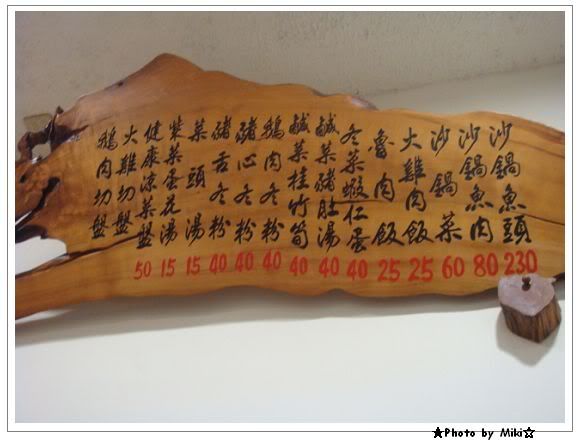 沙鍋魚頭 230
沙鍋魚肉 80
沙鍋菜 60
火雞肉飯 25
魯肉飯 25
冬菜蝦仁蛋 40
鹹菜豬肚湯 40
鹹菜桂竹筍 40
鵝肉冬粉 40
豬心冬粉 40
豬舌冬粉 40
菜頭湯 15
紫菜蛋花湯 15
健康涼菜盤 50
火雞切盤
鵝肉切盤
★Photo by Miki☆